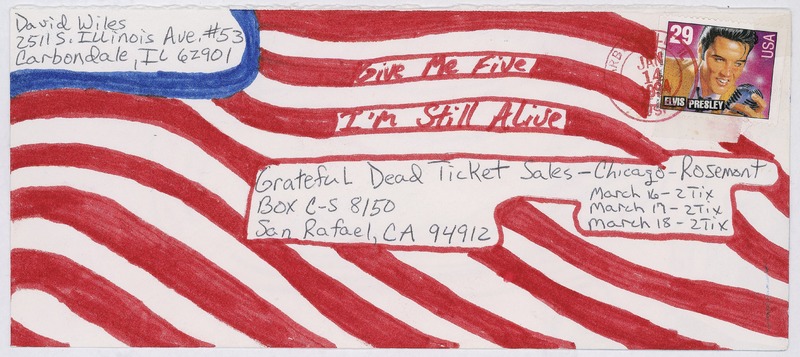 David Wiles
2511 S. Illinois Ave. #53
Carbondale, IL 62901
29
USA
ELVIS PRESLEY
JAN
14
Give Me Five
I'm Still Alive
Grateful Dead Ticket Sales - Chicago - Rosemont
BOX C-S 8150
San Rafael, CA 94912
March 16 - 2 Tix
March 17 - 2 Tix
March 18 - 2 Tix